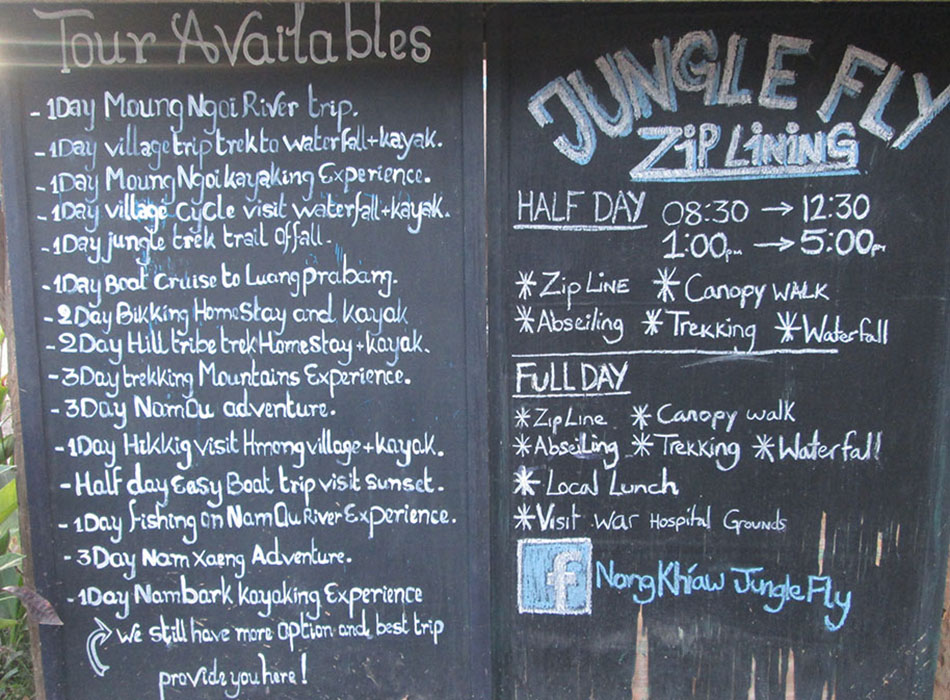 Tour Availables
- 1Day Moung Ngoi River trip.
- 1Day village trip trek to waterfall+kayak.
- 1Day Moung Ngoi kayaking Experience.
- 1Day village Cycle visit waterfall+kayak.
- 1Day jungle trek trail offall.
- 1Day Boat Cruise to Luang prabang.
- 2Day Bikking HomeStay and kayak
- 2Day Hill tribe trek Homestay+kayak.
- 3Day trekking Mountains Experience.
- 3Day NamOu adventure.
- 1Day Hikkig visit Hmong village+kayak.
- Half day Easy Boat trip visit sunset.
- 1Day fishing on Nam Ou River Experience.
- 3Day Nam Xaeng Adventure.
- 1Day Nambark kayaking Experience
We still have more option and best trip
provide you here!
JUNGLE FLY
ZIP LINING
HALF DAY 08:30 → 12:30
1:00pm → 5:00pm
* Zip LINE * Canopy WALK
* Abseiling * Trekking * Waterfall
FULL DAY
* Zip LINE * Canopy walk
* Abseiling * Trekking * Waterfall
* Local Lunch
* Visit War Hospital Grounds
f Nong Khiaw Jungle Fly